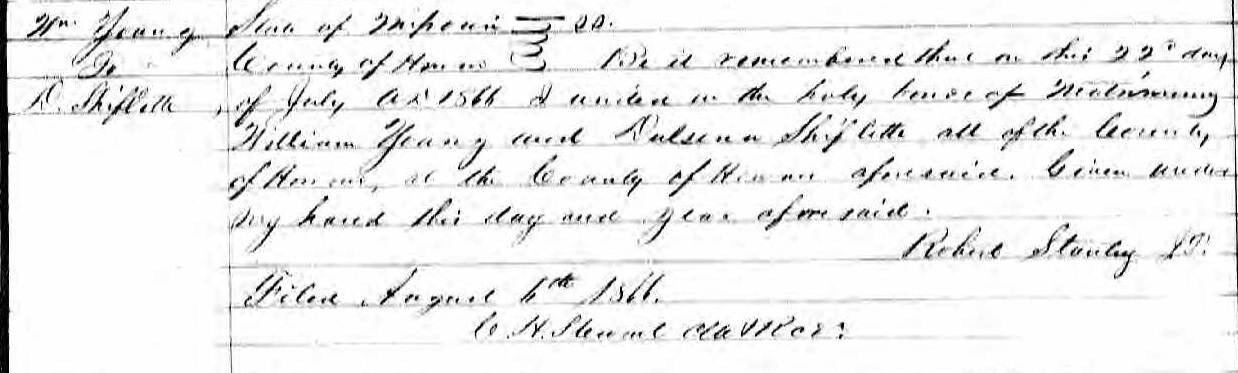 Wm Young State of Missouri } SS.
To County of Howard } Be it remembered that on this 22d day
D. Shiflette, of July AD 1866 I united in the holy bonds of Matrimony
William Young and Dulsena Shiflette all of the County
of Howard, at the County of Howard aforesaid. Given under
my hand this day and year aforesaid.
Robert Stanley JP.
Filed August 6th 1866.
C H. Stewart Clk & Rcdr.